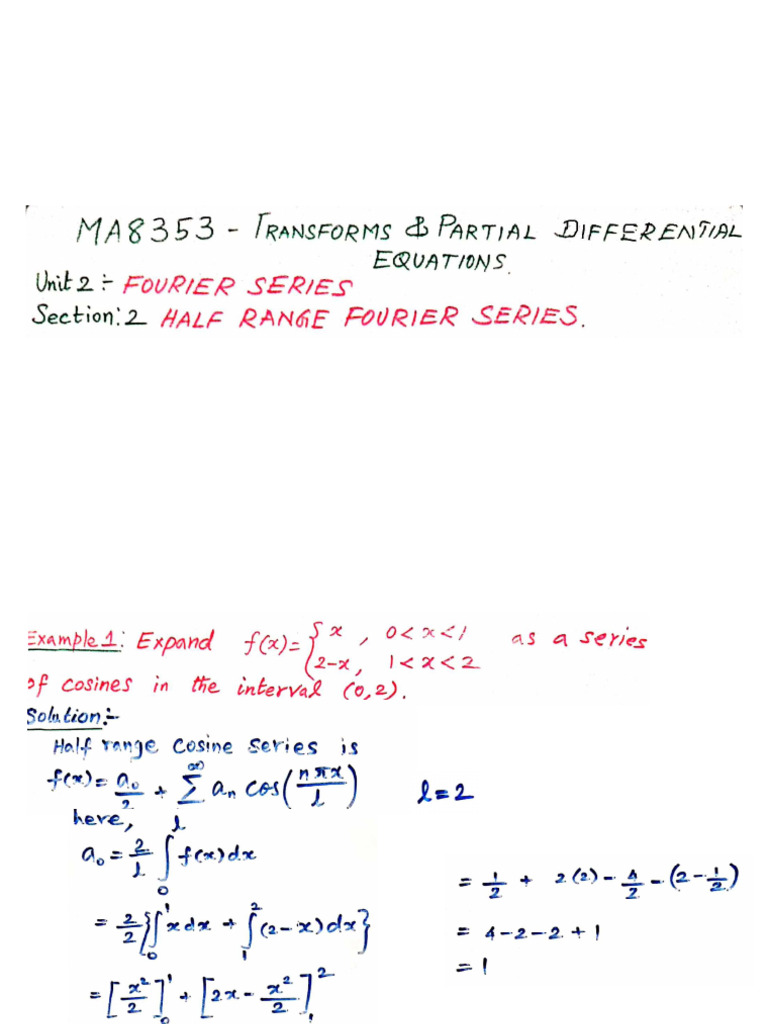 MA8353 - TRANSFORMS & PARTIAL DIFFERENTIAL
EQUATIONS.
Unit 2 :- FOURIER SERIES
Section: 2 HALF RANGE FOURIER SERIES.
Example 1: Expand f(x) = { x , 0 < x < 1 as a series
2-x, 1 < x < 2
of cosines in the interval (0,2).
Solution:-
Half range cosine series is
f(x) = a₀/2 + ∑ aₙ cos(nπx/l) ∞ l = 2
here,
a₀ = 2/l ∫₀ˡ f(x) dx
= 2/2 { ∫₀¹ x dx + ∫₁² (2-x) dx }
= [x²/2]₀¹ + [2x - x²/2]₁²
= 1/2 + 2(2) - 4/2 - (2 - 1/2)
= 4-2-2+1
= 1